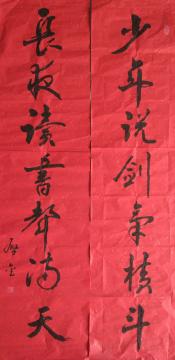 少年说剑气横斗
长夜读书声满天